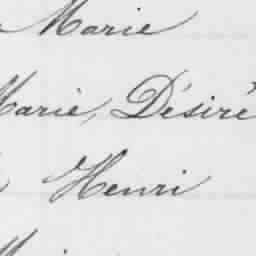 Marie
Marie, Désiré
Henri